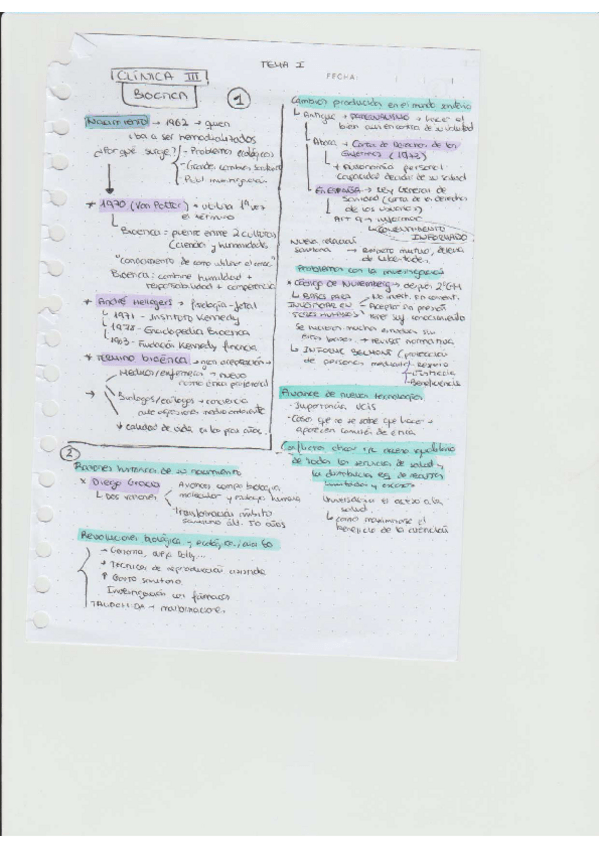 TEMA I
CLÍNICA III
FECHA:
BIOETICA
1
Nacimiento → 1962 → quien
iba a ser hemodializados
¿Por qué surge? - Problemas ecológicos
- Grandes cambios sanitarios
* 1970 (Van Potter) → utiliza 1ª vez
el término
Bioética: puente entre 2 culturas
(ciencia y humanidades)
"conocimiento de como utilizar el
Bioética: combine humildad +
responsabilidad + competencia
* André Hellegers → Fisiología-fetal
↳ 1971 - Instituto Kennedy
↳ 1978 - Enciclopedia Bioética
Fundación Kennedy financia
* TÉRMINO bioética → gran aceptación
Médicos/enfermeros → nuevo
nombre ética profesional
→ Biólogos/ecólogos → conciencia
medio ambiente
calidad de vida en los próx años.
Cambios producidos en el mundo sanitario
Antigua → PATERNALISMO → hacer el
bien aun en contra de su voluntad
Ahora → Carta de Derechos de los
Enfermos (1972)
+ Autonomía personal
capacidad decidir de su salud
EN ESPAÑA → Ley General de
Sanidad (carta de los derechos
de los usuarios)
Art 9 → informar
CONSENTIMIENTO
INFORMADO
Nueva relación
sanitaria → Respeto mutuo, defensa
de libertades.
Problemas con la investigación
* Código de NUREMBERG → después 2ªGM
↳ BASES PARA → No invest. sin consent.
INVESTIGAR EN → Aceptar sin presión
SERES HUMANOS → Tener suf. conocimiento
Se hicieron muchos estudios sin
estas bases → revisar normativa
↳ INFORME BELMONT (protección
de personas mediante) - Respeto
- Justicia
- Beneficencia
Avance de nuevas tecnologías
- Importancia UCIS
- Casos que no se sabe que hacer →
aparecen comités de ética
2
Razones históricas de su nacimiento
* Diego Gracia
↳ Dos razones
Avances campo biología
molecular y ecología humana
Transformación ámbito
sanitario últ. 50 años
Revolución biológica y ecológica / años 60
→ Genoma, oveja Dolly...
→ Técnicas de reproducción asistida
↑ Gasto sanitario
Investigación con fármacos
TALIDOMIDA → malformaciones
de todos los servicios de salud y
la distribución eq. de recursos
limitados y escasos
Universalizar el acceso a la
salud.
↳ como maximizarse el
beneficio de la